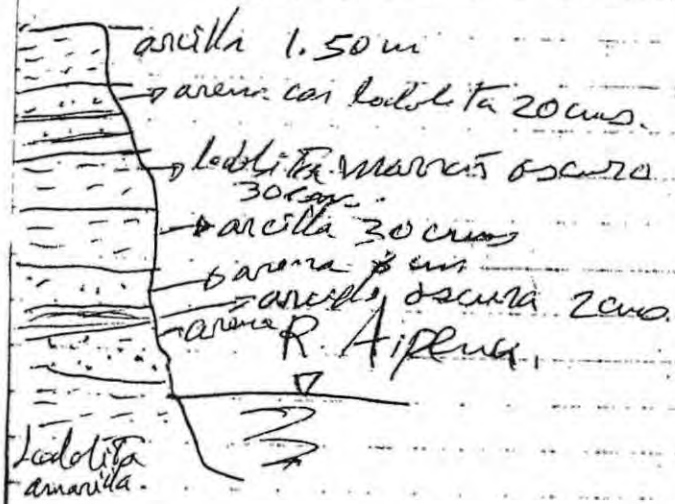 arcilla 1.50 m
arena con lodolita 20 cms.
lodolita marrón oscuro
30 cms.
arcilla 30 cms
arena cms
arcilla oscura 2 cms.
arena
R. Aipena.
Lodolita
amarilla.